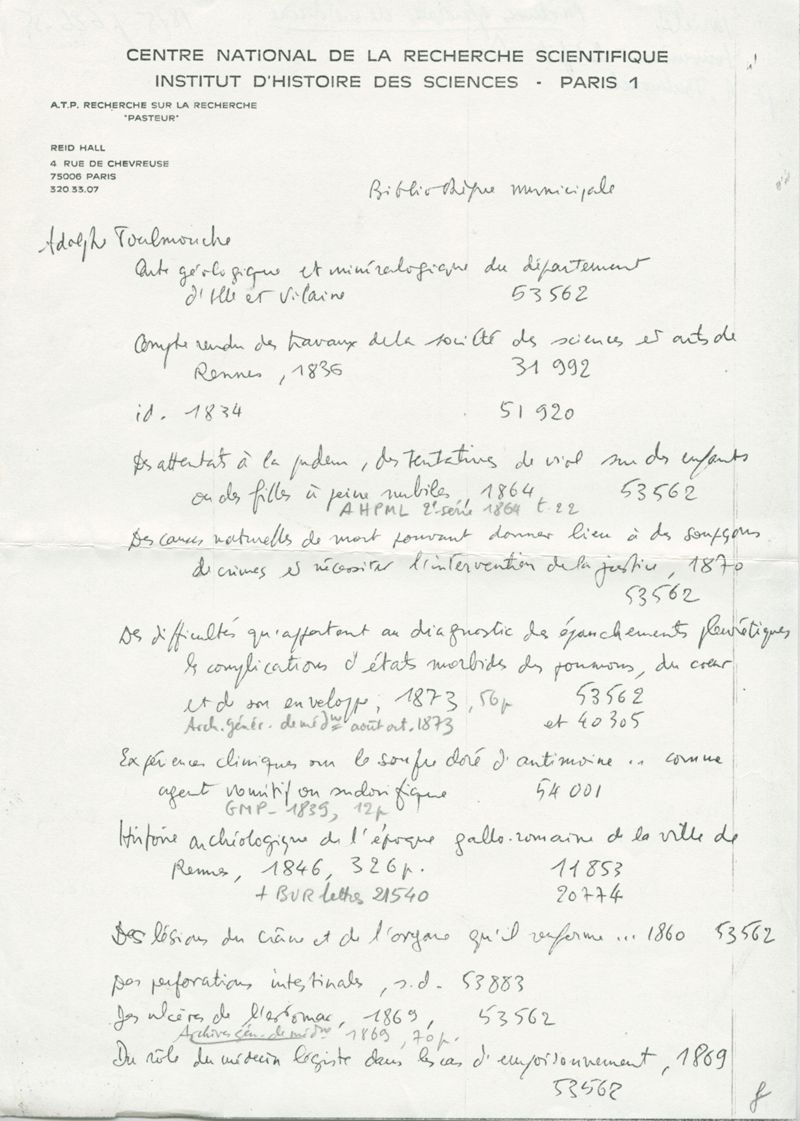 CENTRE NATIONAL DE LA RECHERCHE SCIENTIFIQUE
INSTITUT D'HISTOIRE DES SCIENCES - PARIS 1
A.T.P. RECHERCHE SUR LA RECHERCHE
"PASTEUR"
REID HALL
4 RUE DE CHEVREUSE
75006 PARIS
320 33.07
Bibliothèque municipale
Adolphe Toulmouche
Carte géologique et minéralogique du département
d'Ille et Vilaine 53562
Compte rendu des travaux de la société des sciences et arts de
Rennes, 1836 31 992
id. 1834 51 920
Des attentats à la pudeur, des tentatives de viol sur des enfants
ou des filles à peine nubiles, 1864 53562
AHPML 2e série 1864 t. 22
Des causes naturelles de mort pouvant donner lieu à des soupçons
de crimes et nécessiter l'intervention de la justice, 1870
53562
Des difficultés qu'apportent au diagnostic des épanchements pleurétiques
les complications d'états morbides des poumons, du cœur
et de son enveloppe, 1873, 56p 53562
Arch. génér. de médne août oct. 1873 et 40305
Expériences cliniques sur le soufre doré d'antimoine .. comme
agent vomitif ou sudorifique 54 001
GMP - 1839, 12p
Histoire archéologique de l'époque gallo-romaine de la ville de
Rennes, 1846, 326p. 11853
+ BUR lettres 21540 20774
Des lésions du crâne et de l'organe qu'il renferme ... 1860 53562
Des perforations intestinales, s.d. 53883
Des ulcères de l'estomac, 1869, 53562
Archives gén. de médne 1869, 70p.
Du rôle du médecin légiste dans les cas d'empoisonnement, 1869
53562